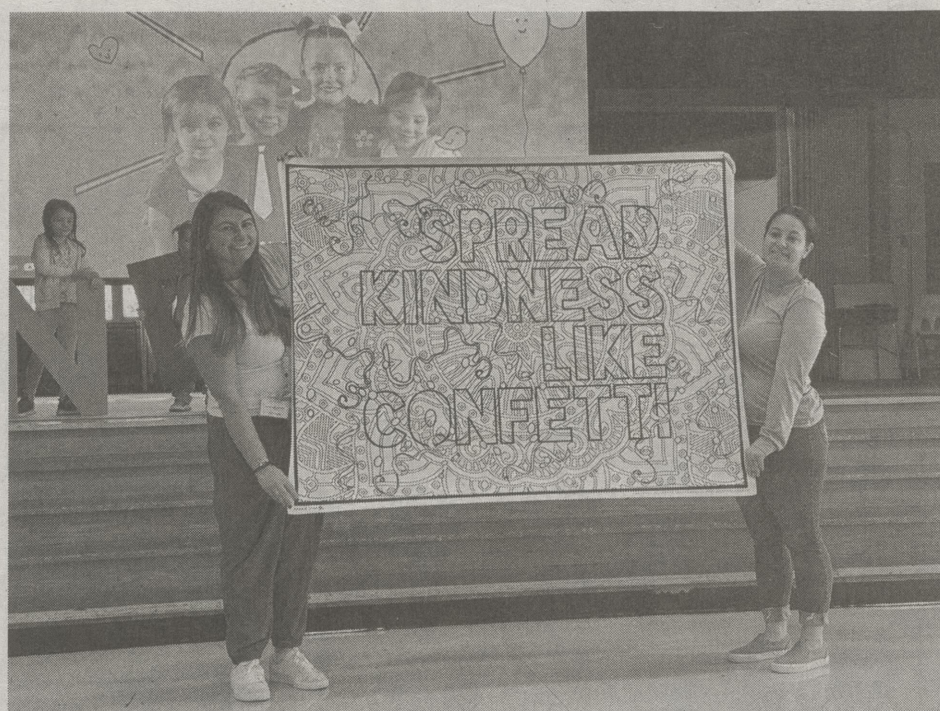 SPREAD
KINDNESS
LIKE
CONFETTI